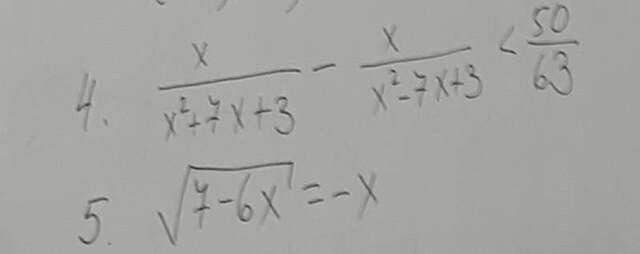 4. \frac{x}{x^2+7x+3} - \frac{x}{x^2-7x+3} < \frac{50}{63}
5. \sqrt{7-6x} = -x